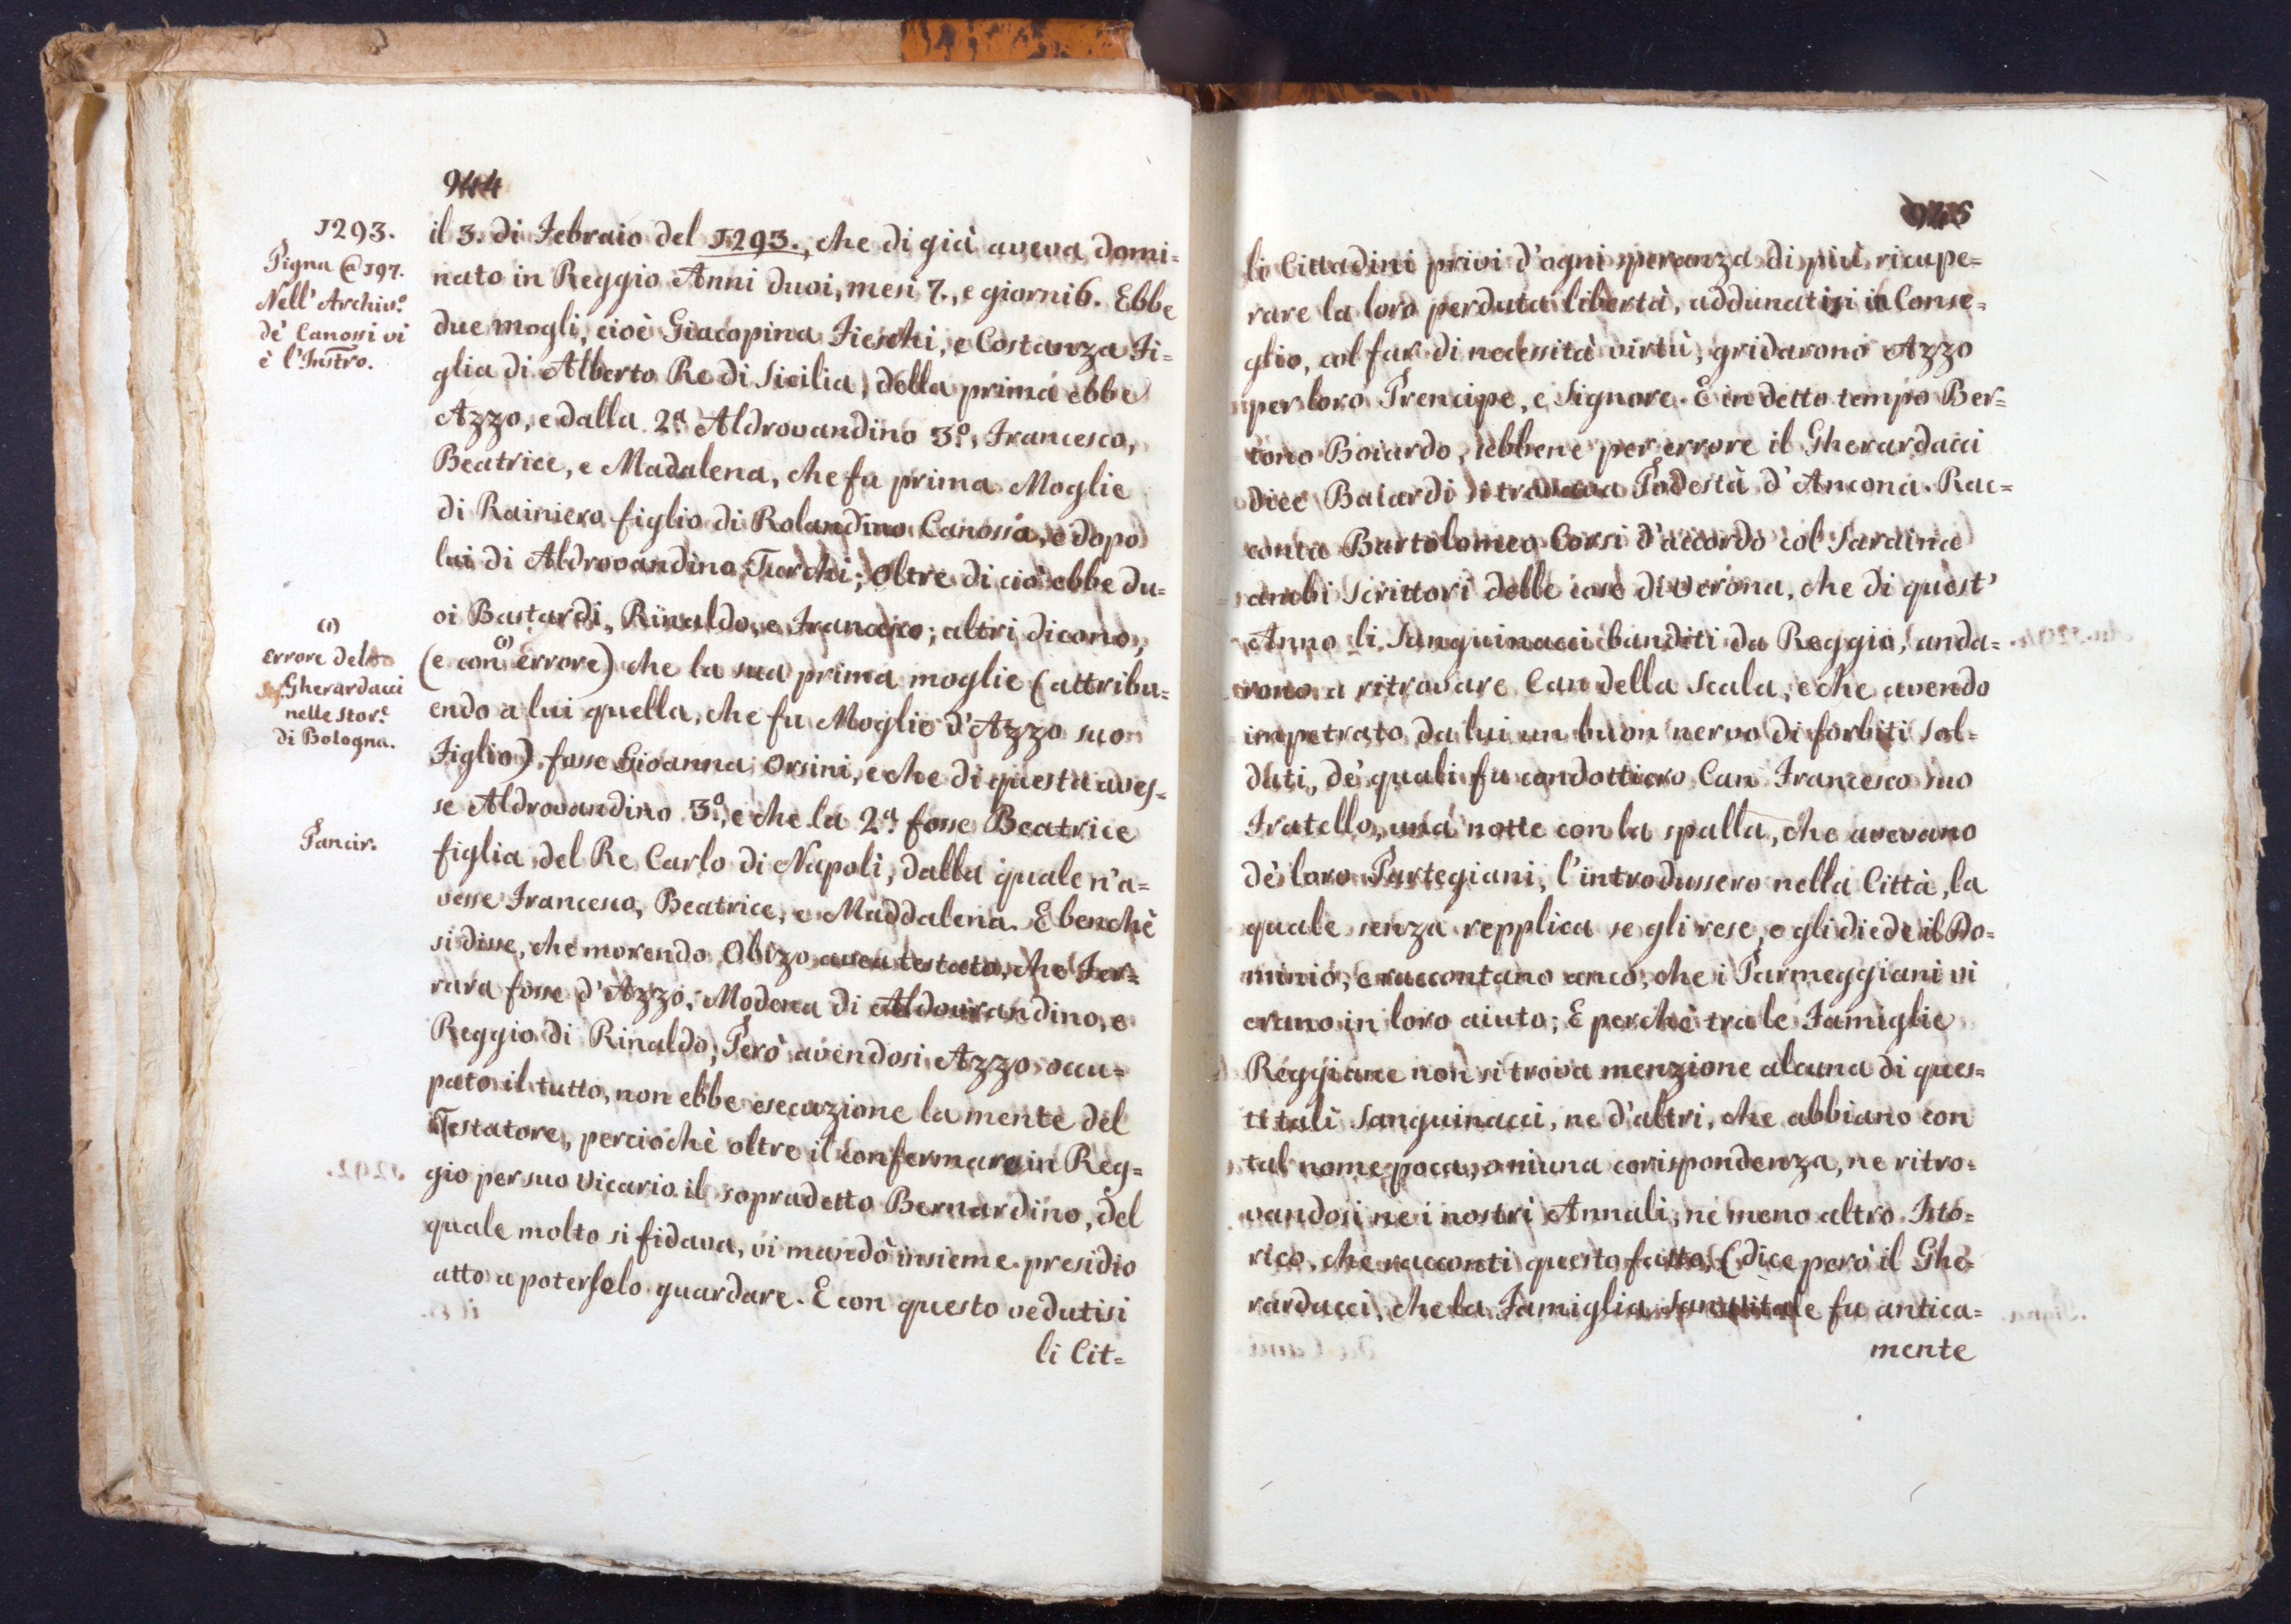 944
1293.
Pigna @ 197.
Nell' Archiv.º
dè Canossi vi
è l'Instro.
il 3. di Febraio del 1293., che di già aveva domi=
nato in Reggio Anni duoi, mesi 7., e giorni 6. Ebbe
due mogli, cioè Giacopina Fieschi, e Costanza Fi=
glia di Alberto Re di Sicilia, della prima ebbe
Azzo, e dalla 2.ª Aldrovandino 3.º, Francesco,
Beatrice, e Madalena, che fu prima Moglie
di Rainiero figlio di Rolandino Canossa, e dopo
lui di Aldrovandino Turchi; Oltre di ciò ebbe du=
oi Bastardi, Rinaldo, e Francesco; altri dicono,
(e con (1) errore) che la sua prima moglie (attribu=
endo a lui quella, che fu Moglie d'Azzo suo
Figlio), fosse Gioanna Orsini, e che di questa aves=
se Aldrovandino 3.º, e che la 2.ª fosse Beatrice
figlia del Re Carlo di Napoli, dalla quale n'a=
vesse Francesco, Beatrice, e Maddalena. E benchè
si disse, che morendo Obizo avea testato, che Fer=
rara fosse d'Azzo, Modena di Aldourandino, e
Reggio di Rinaldo; Però avendosi Azzo occu=
pato il tutto, non ebbe esecuzione la mente del
Testatore, perciochè oltre il confermare in Reg=
gio per suo Vicario il sopradetto Bernardino, del
quale molto si fidava, vi mandò insieme presidio
atto a poterselo guardare. E con questo vedutisi
li Cit=
(1)
Errore del
Gherardacci
nelle Stor.e
di Bologna.
Pancir.
945
li Cittadini privi d'ogni speranza di più ricupe=
rare la loro perduta libertà, addunatisi in Conse=
glio, col far di necessità virtù, gridarono Azzo
per loro Prencipe, e Signore. E in detto tempo Ber=
tono Boiardo, sebbene per errore il Gherardacci
dice Baiardi si trovava Podestà d'Ancona. Rac=
conta Bartolomeo Corsi d'accordo col Saraina
ambi Scrittori delle cose di Verona, che di quest'
Anno li Sanguinacci banditi da Reggio, anda=
rono a ritrovare Can della Scala, e che avendo
impetrato da lui un buon nervo di forbiti Sol=
dati, de' quali fu condottiero Can Francesco suo
Fratello, una notte con la spalla, che avevano
dè loro Partegiani, l'introdussero nella Città, la
quale senza repplica se gli rese, e gli diede il Do=
minio, e raccontano anco, che i Parmeggiani vi
erano in loro aiuto; E perchè tra le Famiglie
Reggiane non si trova menzione alcuna di ques=
ti tali Sanguinacci, ne d'altri, che abbiano con
tal nome poca, o niuna corispondenza, ne ritro=
vandosi ne i nostri Annali, nè meno altro Isto=
rico, che racconti questo fatto, (dice però il Ghe=
rardacci, che la Famiglia Sanvitale fu antica=
mente